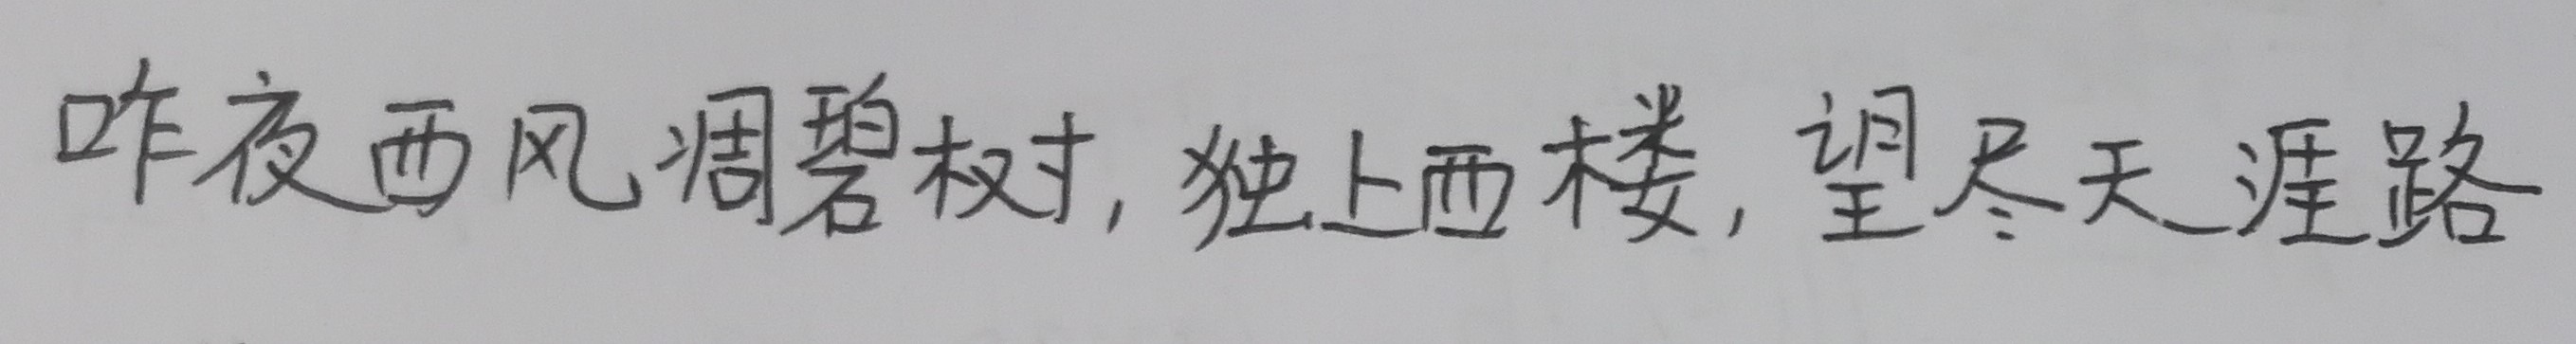 昨夜西风凋碧树，独上西楼，望尽天涯路